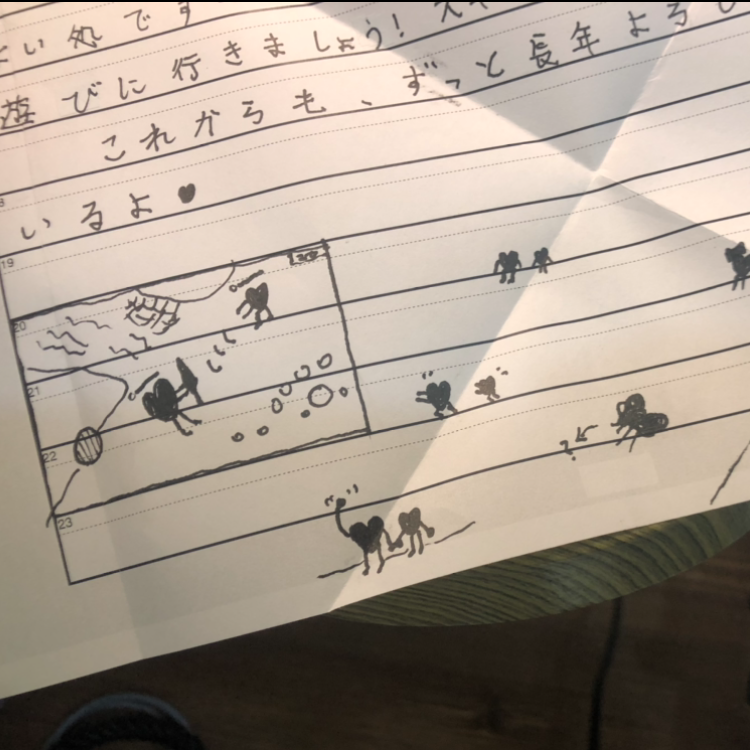 い処です
遊びに行きましょう!
これからも、ずっと長年よろし
いるよ♥
19
20
21
22
23